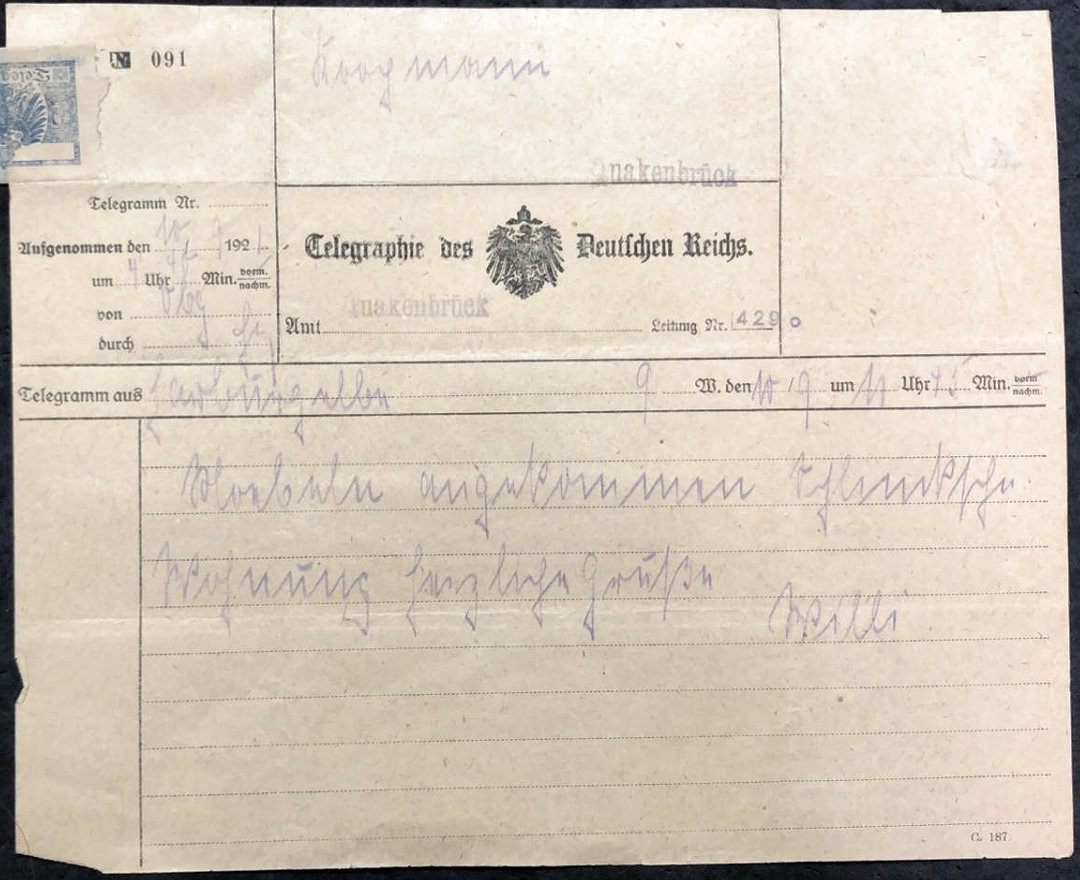 № 091
Koopmann
Quakenbrück
Telegramm Nr.
Aufgenommen den 10 / 9 1921
um Uhr Min. vorm. nachm.
von Hbg
durch
Telegraphie des Deutschen Reichs.
Quakenbrück
Amt Leitung Nr. 4290
Telegramm aus harburgelbe 9 W. den 10 / 9 um 11 Uhr 45 Min. vorm. nachm.
Moebeln angekommen Schlinksche
Wohnung herzliche Grüße
Willi
C. 187.